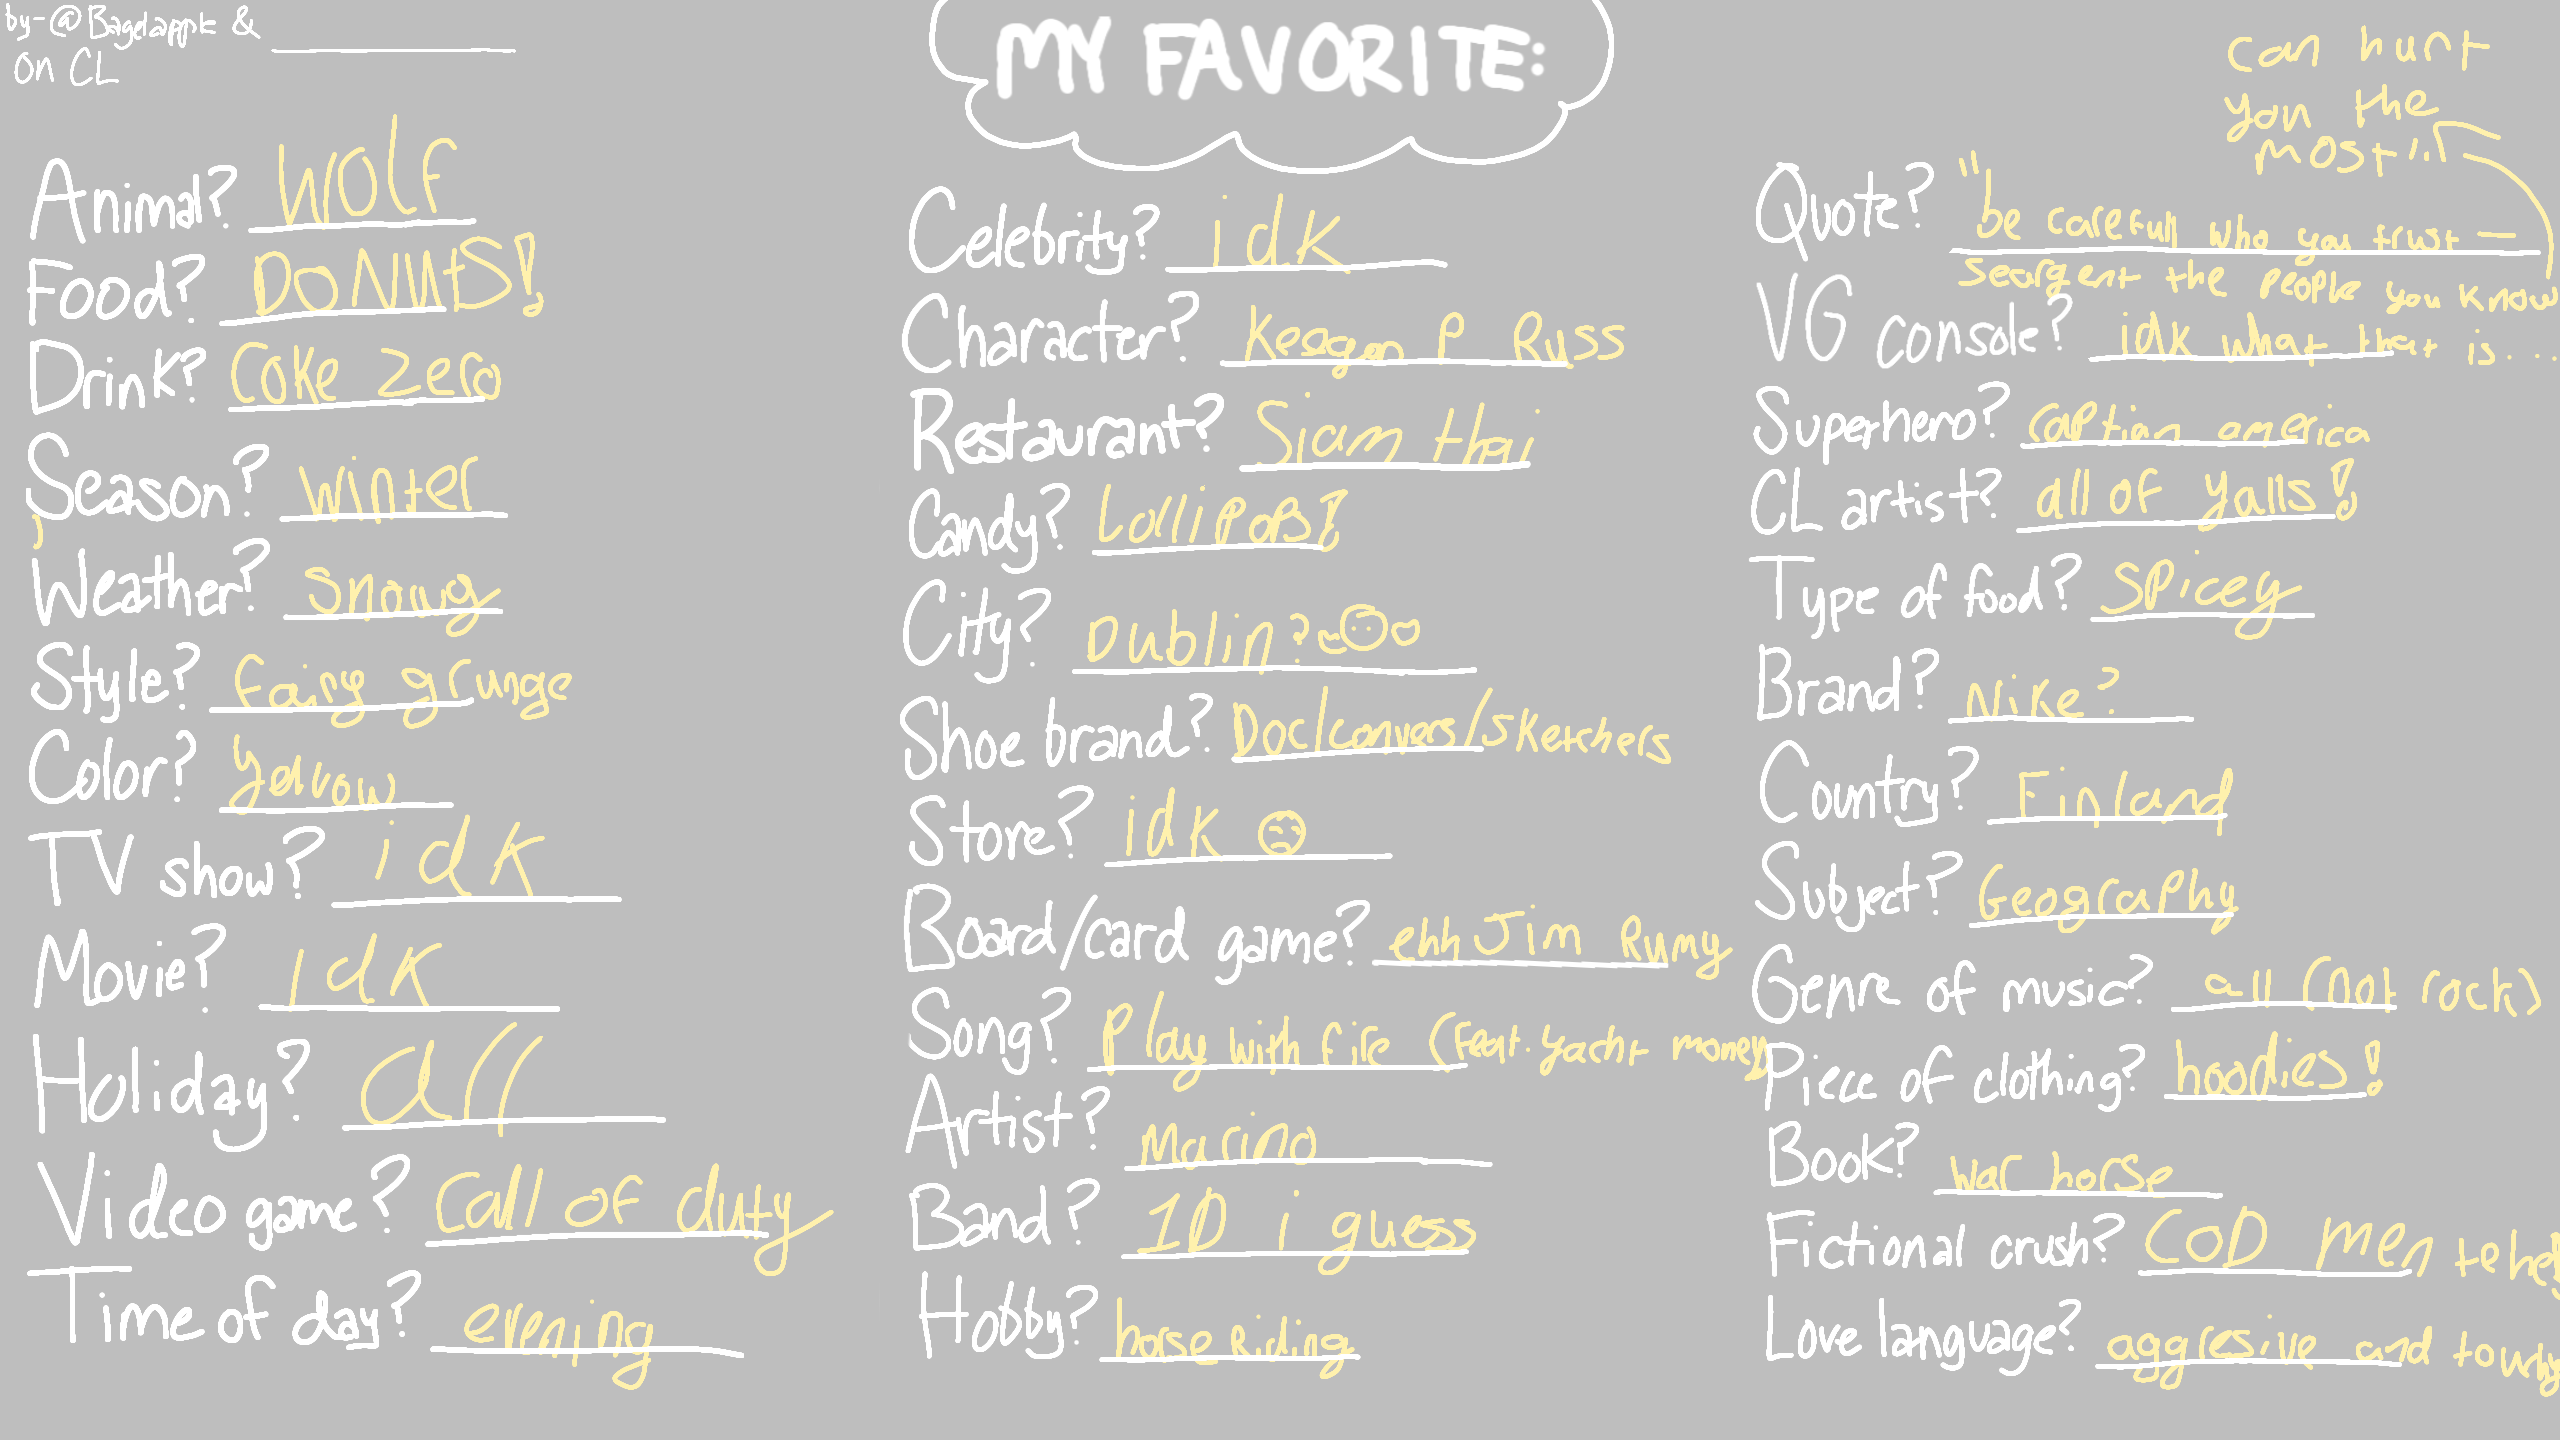 by-@Bagelapple &
on CL
MY FAVORITE:
Animal? wolf
Food? DONUtS!
Drink? Coke zero
Season? winter
Weather? snowy
Style? fairy grunge
Color? yellow
TV show? idk
Movie? idk
Holiday? all
Video game? Call of duty
Time of day? evening
Celebrity? idk
Character? Keagen P Russ
Restaurant? Siam thai
Candy? Lollipops!
City? Dublin?
Shoe brand? Doc/convers/sketchers
Store? idk
Board/card game? ehh Jim Rumy
Song? Play with fire (feat. yacht money
Artist? Marino
Band? 1D i guess
Hobby? horse Riding
Quote? "be carefull who you trust —
seargent the people you know
can hurt
you the
most!!"
VG console? idk what that is...
Superhero? captian america
CL artist? all of yalls!
Type of food? spicey
Brand? Nike?
Country? Finland
Subject? Geography
Genre of music? all (not rock)
Piece of clothing? hoodies!
Book? war horse
Fictional crush? COD men tehe
Love language? aggresive and touchy